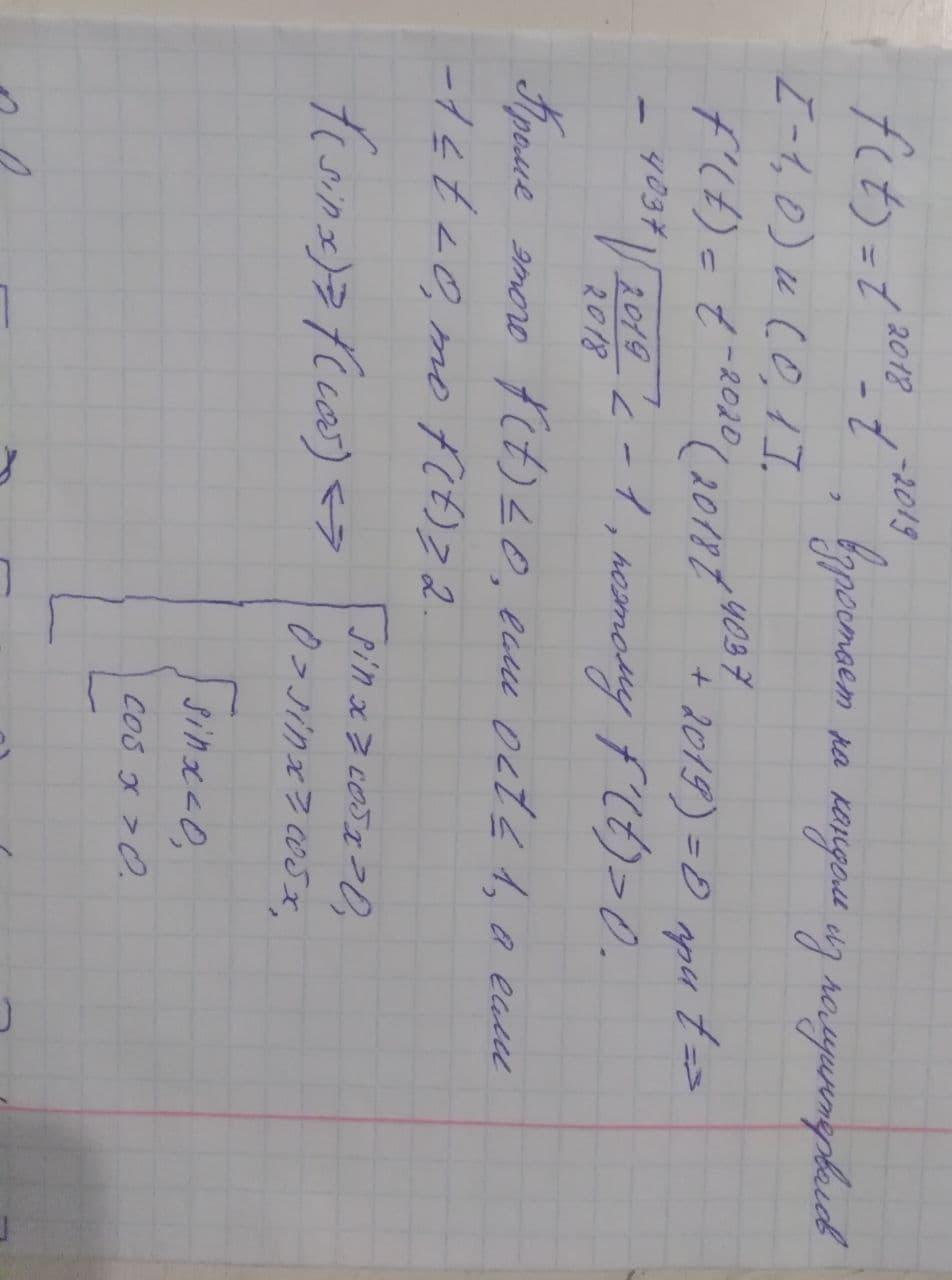 f(t) = t^2018 - t^-2019, взростает на каждом из полуинтервалов
[-1, 0) и (0, 1].
f'(t) = t^-2020 (2018t^4037 + 2019) = 0 при t =>
- ^4037√(2019/2018) < -1, поэтому f'(t) > 0.
Кроме этого f(t) ≤ 0, если 0<t≤1, а если
-1 ≤ t < 0, то f(t) ≥ 2.
f(sin x) ≥ f(cos) <=>
sin x ≥ cos x > 0,
0 > sin x ≥ cos x,
sin x < 0,
cos x > 0.